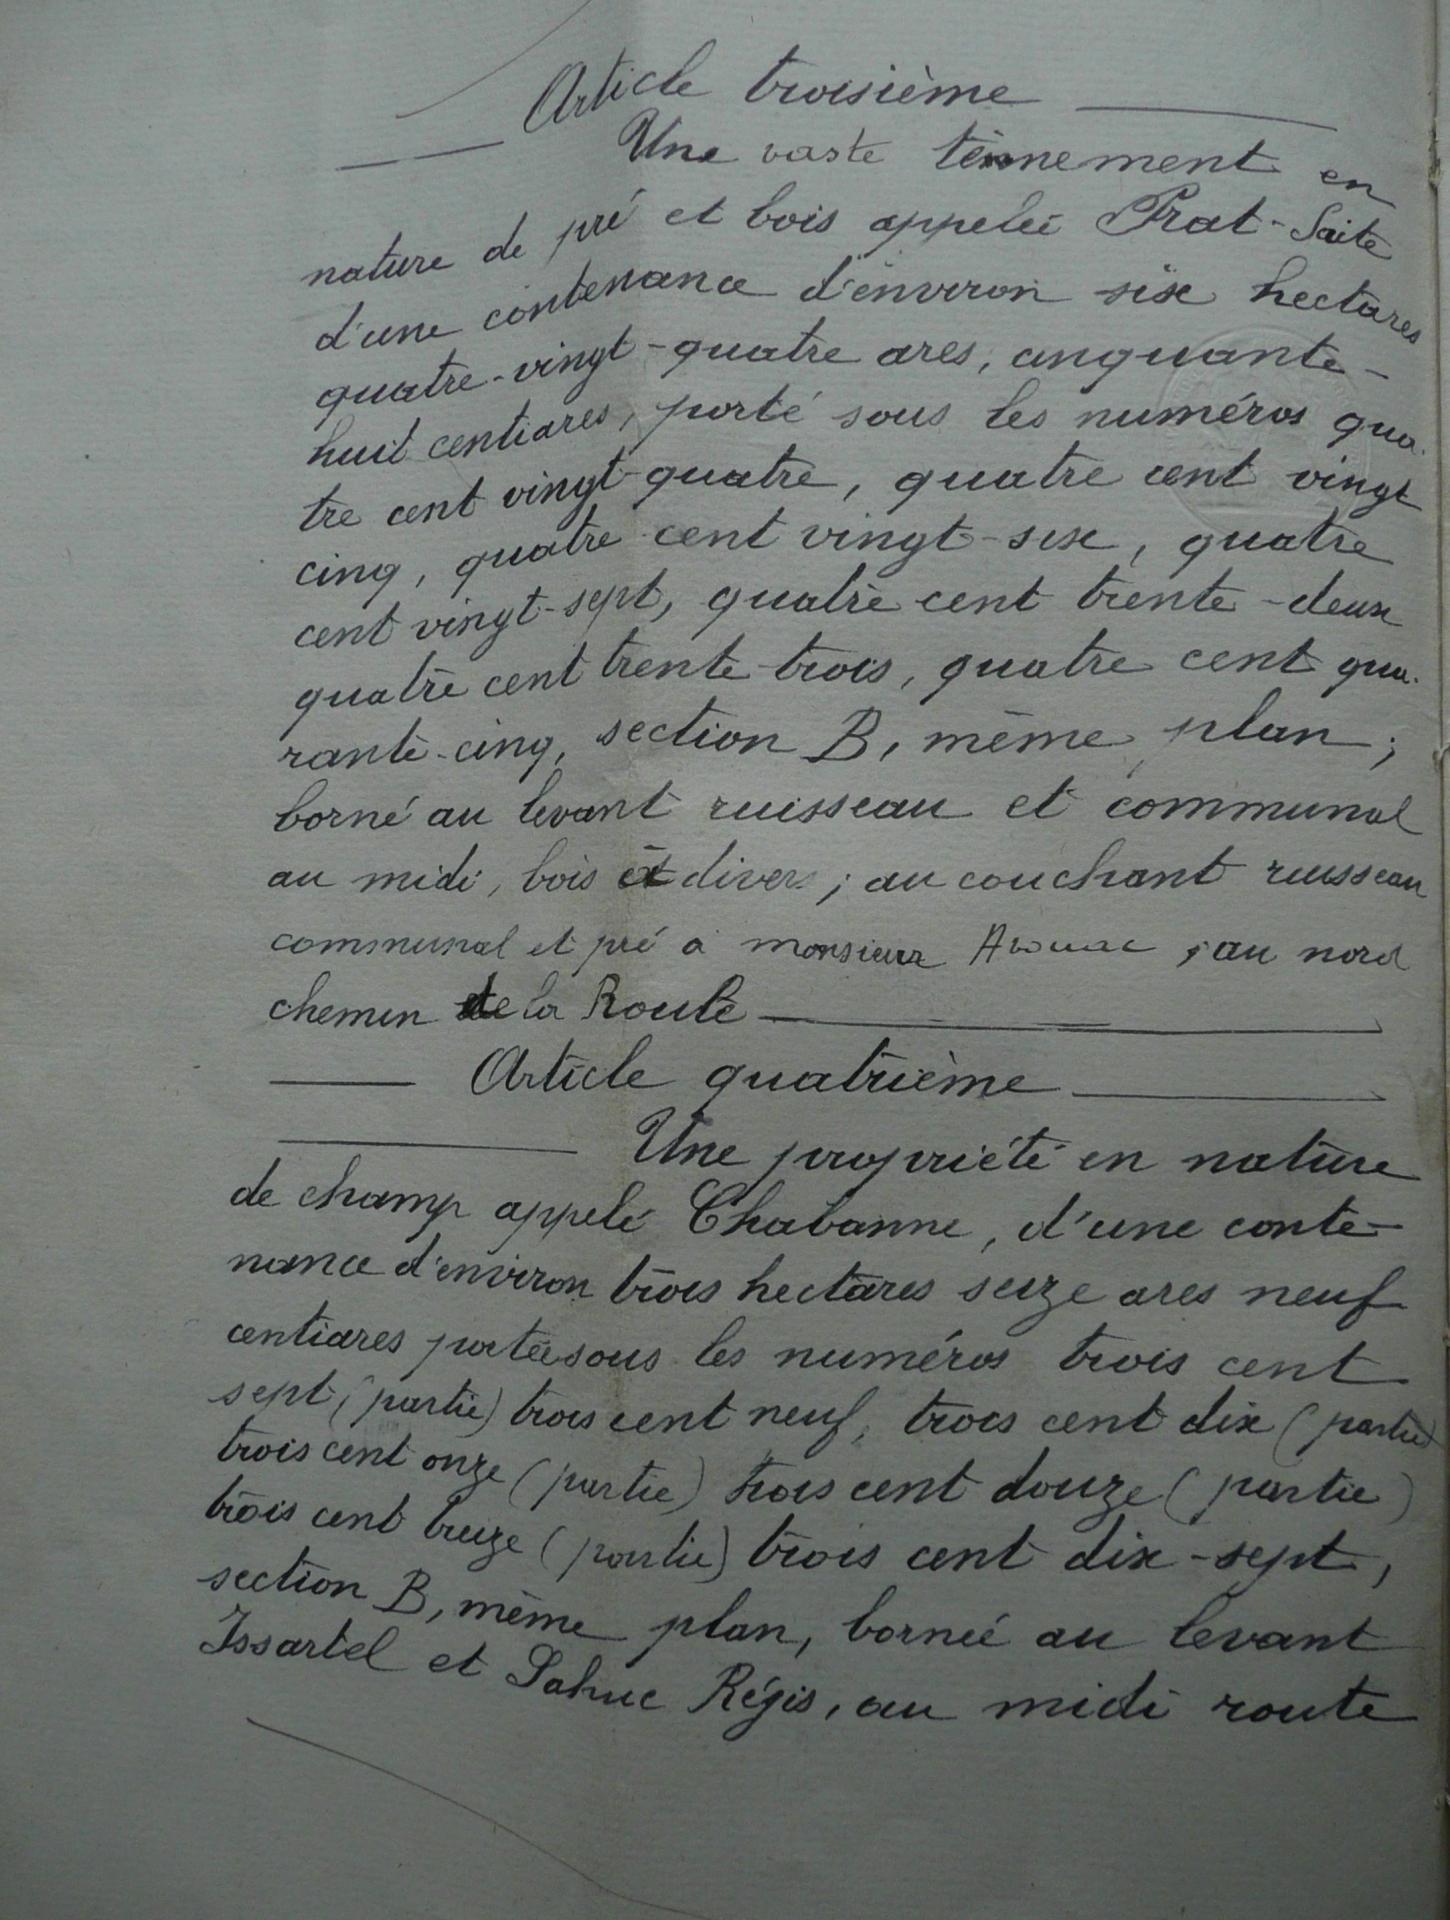 Article troisième
Une vaste tènnement en
nature de pré et bois appelée Prat-Saite
d'une contenance d'environ six hectares
quatre-vingt-quatre ares, cinquante-
huit centiares, porté sous les numéros qua-
tre cent vingt-quatre, quatre cent vingt
cinq, quatre cent vingt-six, quatre
cent vingt-sept, quatre cent trente-deux
quatre cent trente-trois, quatre cent qua-
rante-cinq, section B, même plan;
borné au levant ruisseau et communal
au midi, bois et divers; au couchant ruisseau
communal et pré à monsieur ; au nord
chemin de la Route
Article quatrième
Une propriété en nature
de champ appelé Chabanne, d'une conte-
nance d'environ trois hectares seize ares neuf
centiares portée sous les numéros trois cent
sept, (partie) trois cent neuf, trois cent dix (partie)
trois cent onze (partie) trois cent douze (partie)
trois cent treize (partie) trois cent dix-sept,
section B, même plan, bornée au levant
Issartel et Sahuc Régis, au midi route